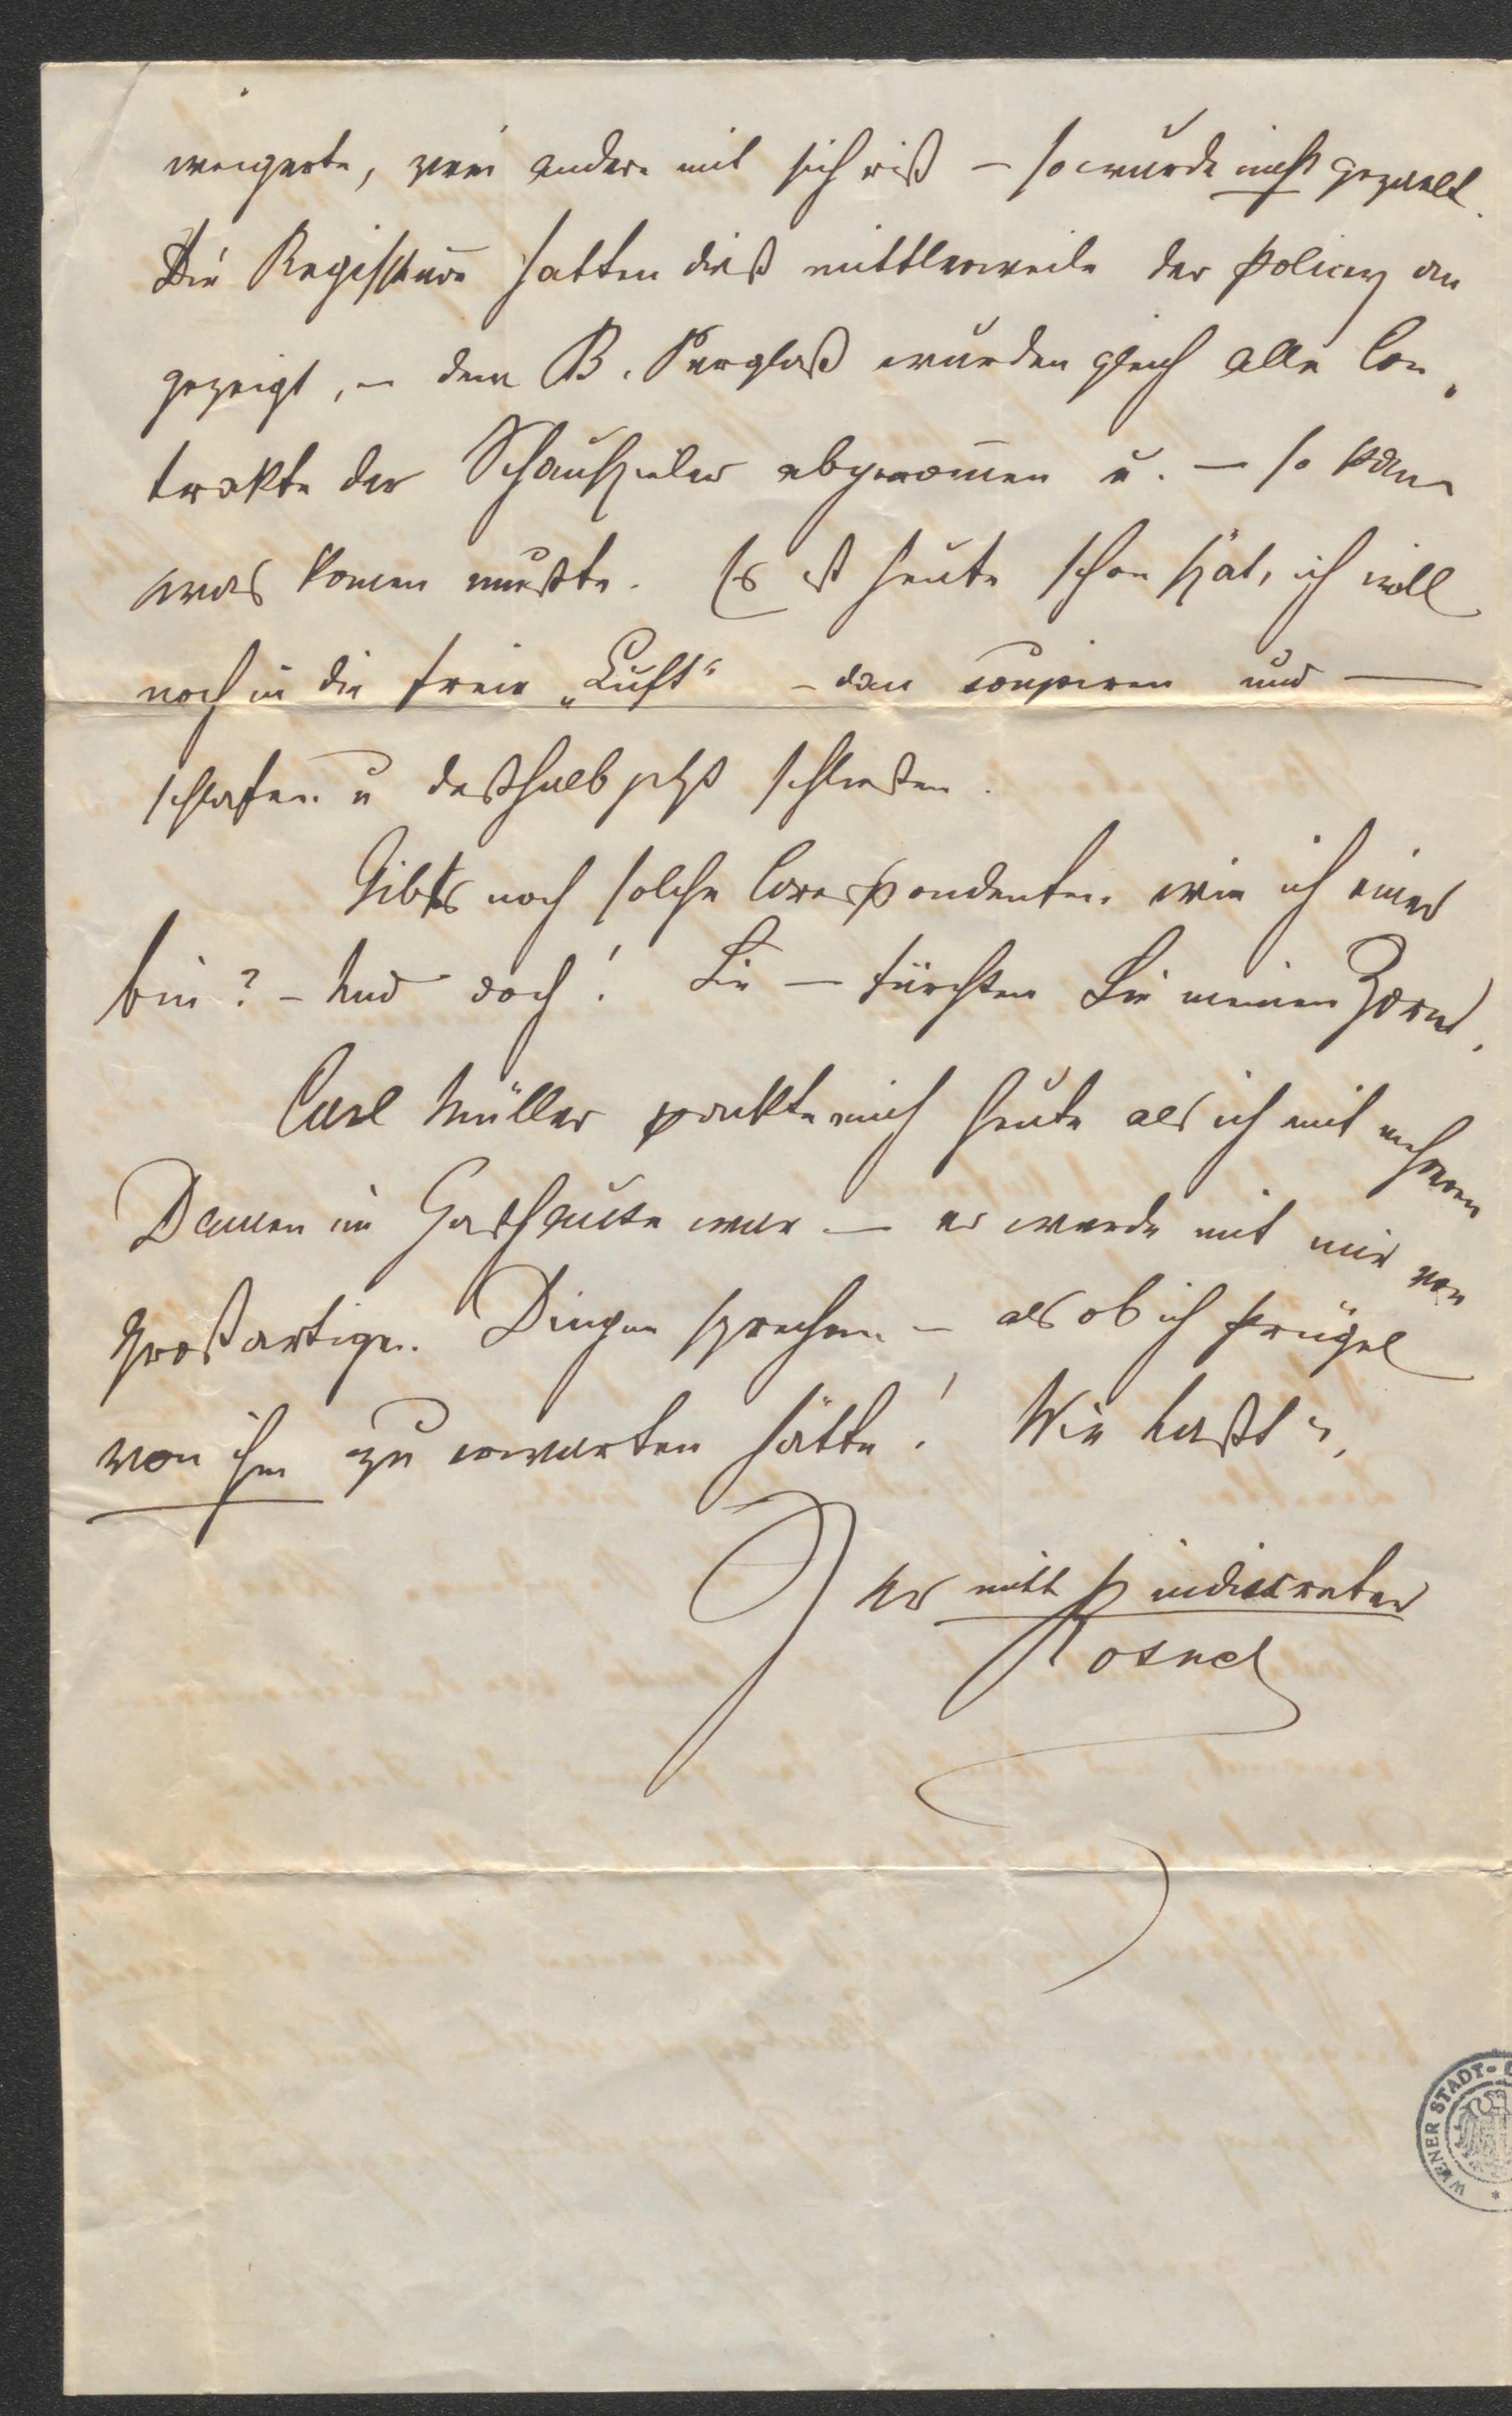 weigerte, zwei andere mit sich riß – so wurde nicht gezahlt.
Die Regisseure hatten dieß mittlerweile der Polizey an
gezeigt, – dem B. Perglaß wurden gleich alle Con,
trakte der Schauspieler abgenom̄en u. – so kam
was kom̄en mußte. Es ist heute schon spät, ich will
noch in die freie „Luft“ – dan̄ soupiren und —
schlafen u deßhalb jetzt schließen.
Gibts noch solche Correspondenten wie ich einer
bin? – Und doch! Sie – fürchten Sie meinen Zorn!
Carl Müller packte mich heute als ich mit mehreren
Damen im Gasthause war – er werde mit mir von
großartigen Dingen sprechen – als ob ich Prügel
von ihm zu erwarten hätte! Wie haßt’s,
Ihr nicht indiscreter